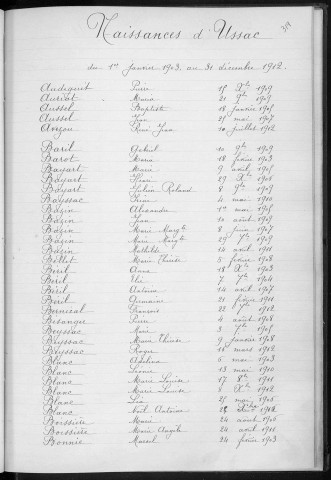 Naissances d'Ussac
du 1er janvier 1903 au 31 décembre 1912.
Pierre 15 Xbre 1909
Auriat Maria 21 9bre 1905
Aussel Baptiste 18 janvier 1905
Aussel Jean 21 mai 1907
René Jean 10 juillet 1912
Baril Gabriel 10 9bre 1909
Barot Maria 18 février 1903
Bayart Marie 9 avril 1905
Bayart Henri 29 Xbre 1908
Bayart Roland 8 9bre 1909
Bayssac 4 mai 1910
Bazin Alexandre 1er mai 1905
Bazin Jean 10 août 1909
Bazin Marie Margte 8 juin 1907
Bazin Marie Margte 29 7bre 1909
Bazin Mathilde 14 avril 1911
Bellet Marie Thérèse 5 février 1908
Béril Anna 18 Xbre 1903
Béril Elie 7 7bre 1904
Béril Antoine 14 avril 1907
Béril Germaine 21 février 1911
Berneval François 22 1912
Besange Pierre 4 août 1908
Beyssac Marie 3 7bre 1905
Beyssac Marie Thérèse 9 janvier 1908
Beyssac Roger 18 mars 1912
Blanc 6 mai 1903
Blanc Léonie 13 mai 1910
Blanc Marie Louise 17 8bre 1911
Blanc Marie Louise 8 Xbre 1911
Blanc 25 mai 1905
Blanc Noël Antoine
Boissière Marie 24 août 1906
Boissière Marie Angèle 24 avril 1911
Bonnie Marcel 24 février 1903